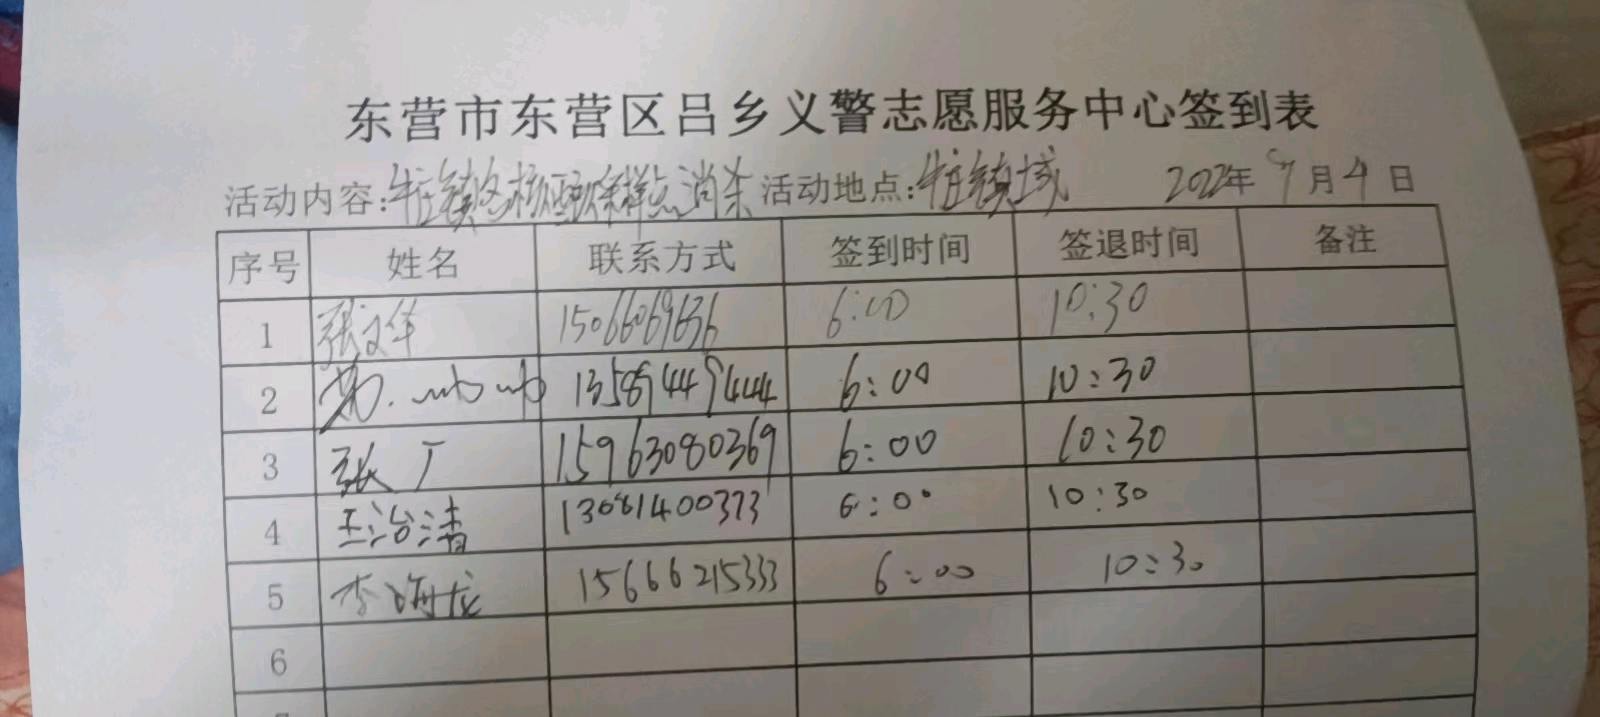 东营市东营区吕乡义警志愿服务中心签到表
活动内容:牛庄镇各核酸采样点消杀 活动地点:牛庄镇域 2022年 月4日
序号 姓名 联系方式 签到时间 签退时间 备注
1 张文华 15066069636 6:00 10:30
2 13589449444 6:00 10:30
3 张广 15963080369 6:00 10:30
4 王治清 13081400373 6:00 10:30
5 李海龙 15666215333 6:00 10:30
6